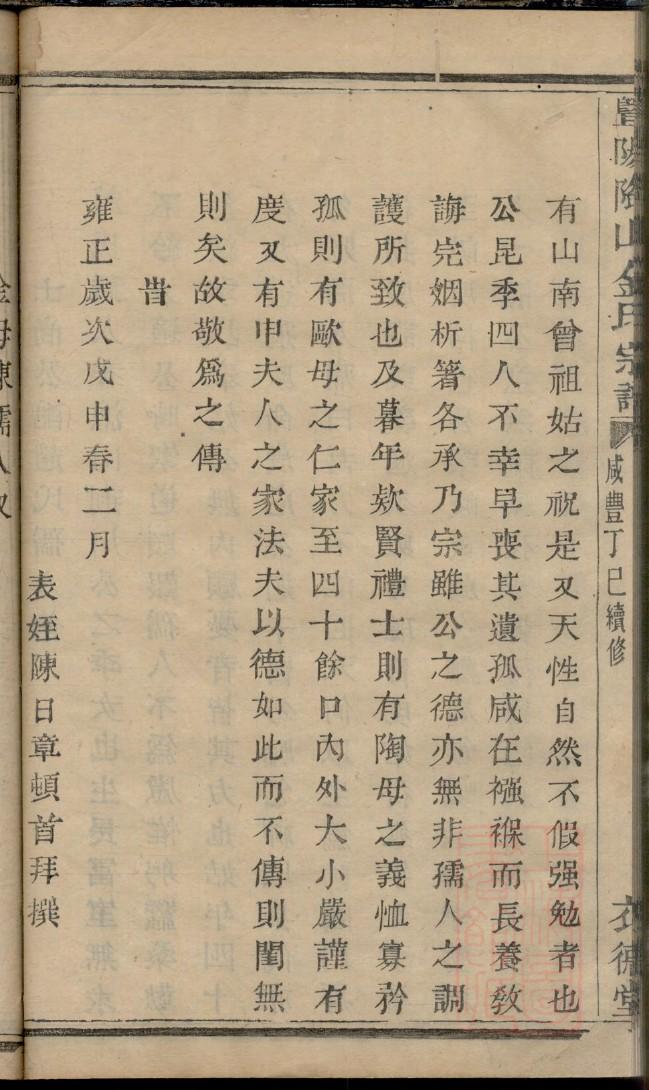 暨陽陶山金氏宗譜 咸豐丁巳續修 衣德堂
有山南曾祖姑之祝是又天性自然不假强勉者也
公昆季四人不幸早喪其遺孤咸在襁褓而長養敎
誨完姻析箸各承乃宗雖公之德亦無非孺人之調
護所致也及暮年欵賢禮士則有陶母之義恤寡矜
孤則有歐母之仁家至四十餘口內外大小嚴謹有
度又有申夫人之家法夫以德如此而不傳則閨無
則矣故敬爲之傳
旹
雍正歲次戊申春二月
表姪陳日章頓首拜撰